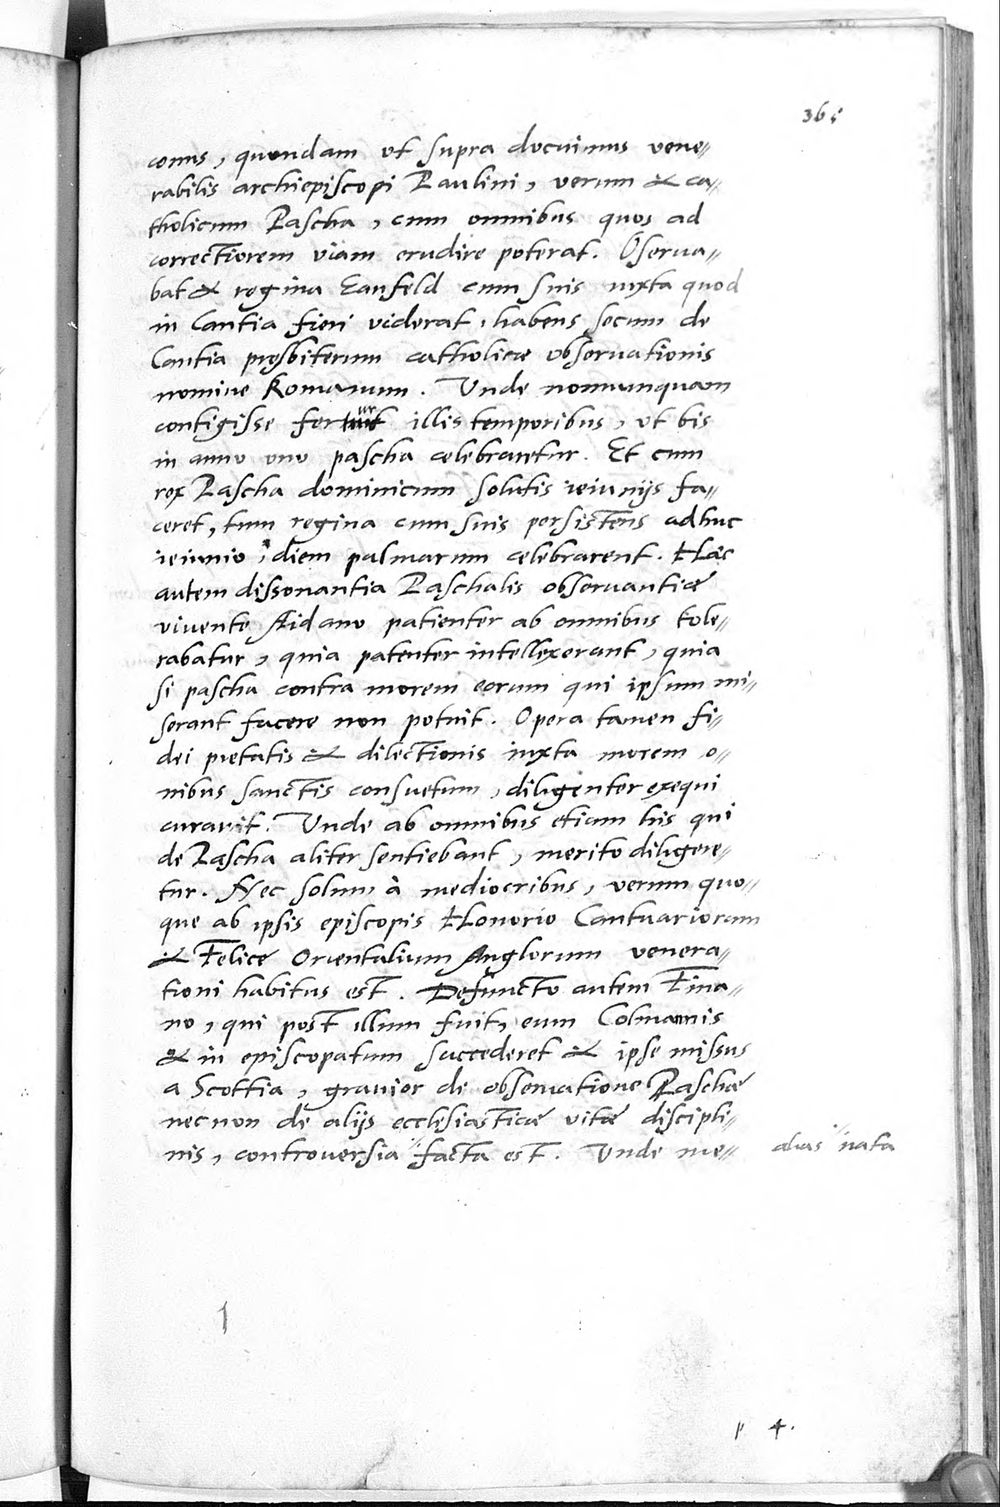 365
conus, quondam ut supra docuimus vene//
rabilis archiepiscopi Paulini, verum & ca//
tholicum Pascha, cum omnibus quos ad
correctiorem viam erudire poterat. Oserua//
bat & regina Eanfeld cum suis iuxta quod
in Cantia fieri viderat, habens secum de
Cantia presbiterum catholicæ observationis
nomine Romanum. Unde nonnunquam
contigisse fertur illis temporibus, ut bis
in anno uno pascha celebraretur. Et cum
rex Pascha dominicum solutis ieiunijs fa//
ceret, tum regina cum suis persistens adhuc
ieiunio, diem palmarum celebrarent. Hæc
autem dissonantia Paschalis observantiæ
vivente Aidano patienter ab omnibus tole//
rabatur, quia patenter intellexerant, quia
si pascha contra morem eorum qui ipsum mi//
serant facere non potuit. Opera tamen fi//
dei pietatis & dilectionis iuxta morem o//
nibus sanctis consuetum, diligenter exequi
curavit. Unde ab omnibus etiam his qui
de Pascha aliter sentiebant, merito diligere//
tur. Nec solum à mediocribus, verum quo//
que ab ipsis episcopis Honorio Cantuariorum
& Felice Orientalium Anglorum venera//
tioni habitus est. Defuncto autem Fina//
no, qui post illum fuit, cum Colmannis
& in episcopatum succederet & ipse missus
a Scottia, gravior de observatione Paschæ
necnon de alijs ecclesiasticæ vitæ discipli//
nis, controversia "facta est. Unde me// alias "nata
p 4.